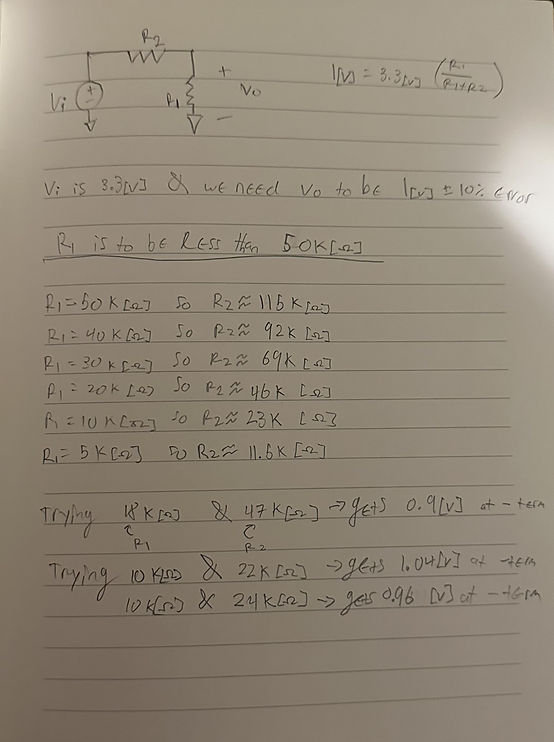 R2
1[V] = 3.3[V] (R1/R1+R2)
Vi + - R1 + Vo -
Vi is 3.3[V] & we need Vo to be 1[V] ± 10% Error
R1 is to be less than 50K[Ω]
R1=50K[Ω] so R2≈115K[Ω]
R1=40K[Ω] so R2≈ 92K [Ω]
R1=30K[Ω] so R2≈ 69K [Ω]
R1=20K[Ω] so R2≈46K [Ω]
R1=10K[Ω] so R2≈23K [Ω]
R1=5K[Ω] so R2≈ 11.5K[Ω]
Trying 18K[Ω] & 47K[Ω] → gets 0.9[V] at - term
R1 R2
Trying 10K[Ω] & 22K[Ω] → gets 1.04[V] at - term
10K[Ω] & 24K[Ω] → gets 0.96 [V] at - term